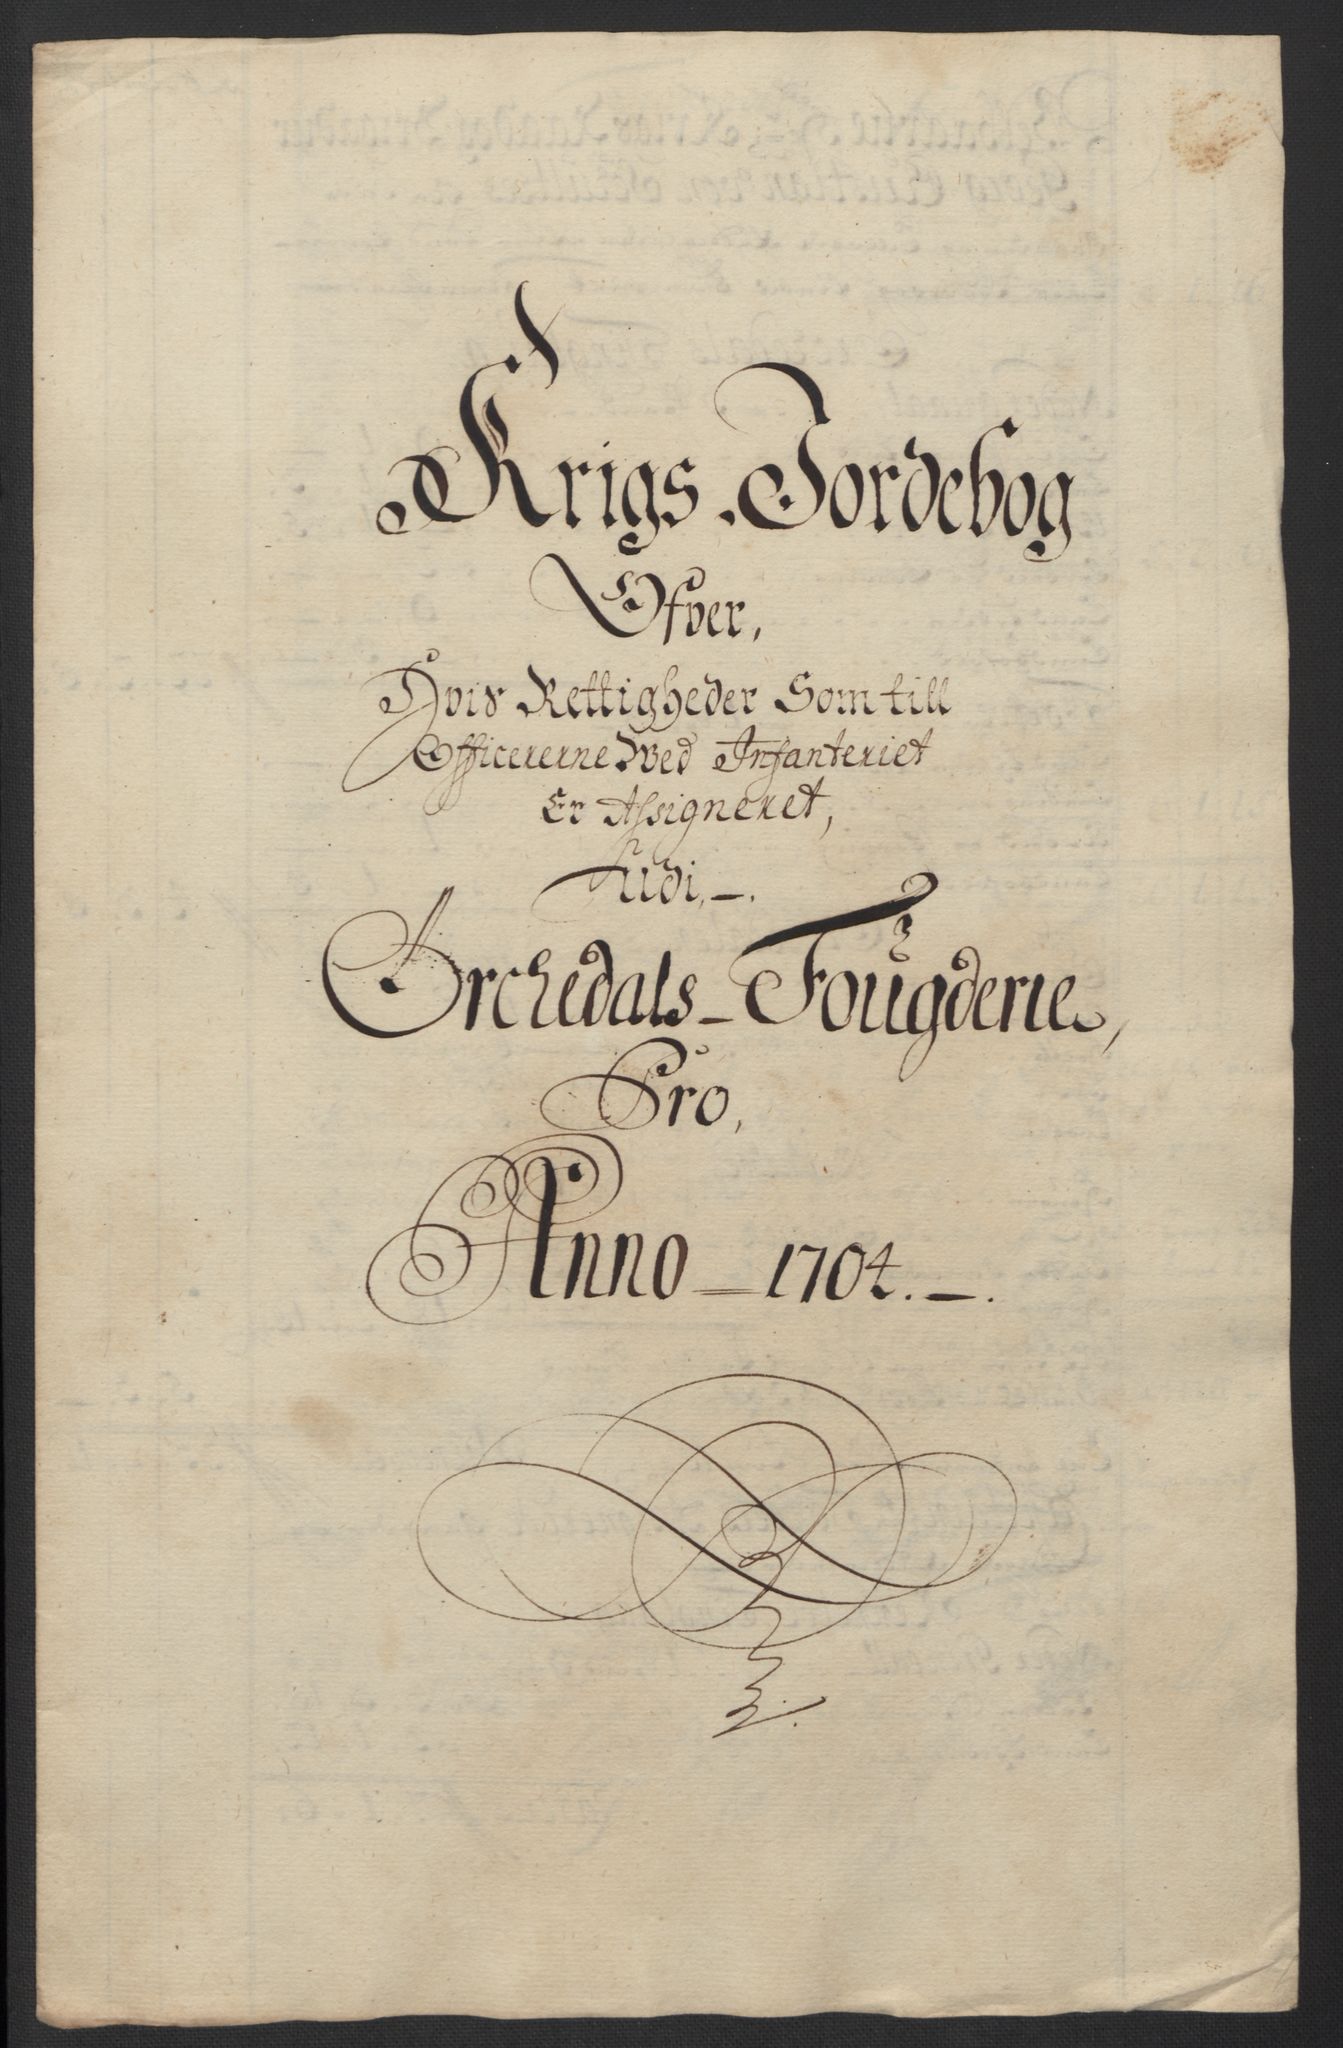 Krigs Jordebog
Ofver,
Hvis Rettigheder Som till
Officererne Wed Infanteriet
Er Assigneret,
Udi, –.
Orchedals – Fougderie,
Pro,
Anno – 1704. –.